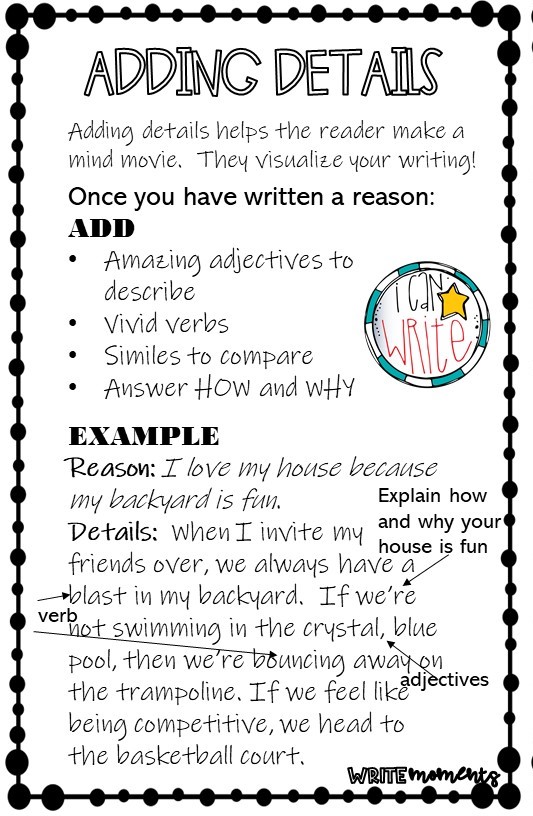 ADDING DETAILS
Adding details helps the reader make a
mind movie. They visualize your writing!
Once you have written a reason:
ADD
• Amazing adjectives to
describe
• Vivid verbs
• Similes to compare
• Answer HOW and WHY
I CAN
WRITE
EXAMPLE
Reason: I love my house because
my backyard is fun.
Explain how
and why your
house is fun
Details: When I invite my
friends over, we always have a
blast in my backyard. If we're
verb
not swimming in the crystal, blue
pool, then we're bouncing away on
adjectives
the trampoline. If we feel like
being competitive, we head to
the basketball court.
WRITE moments